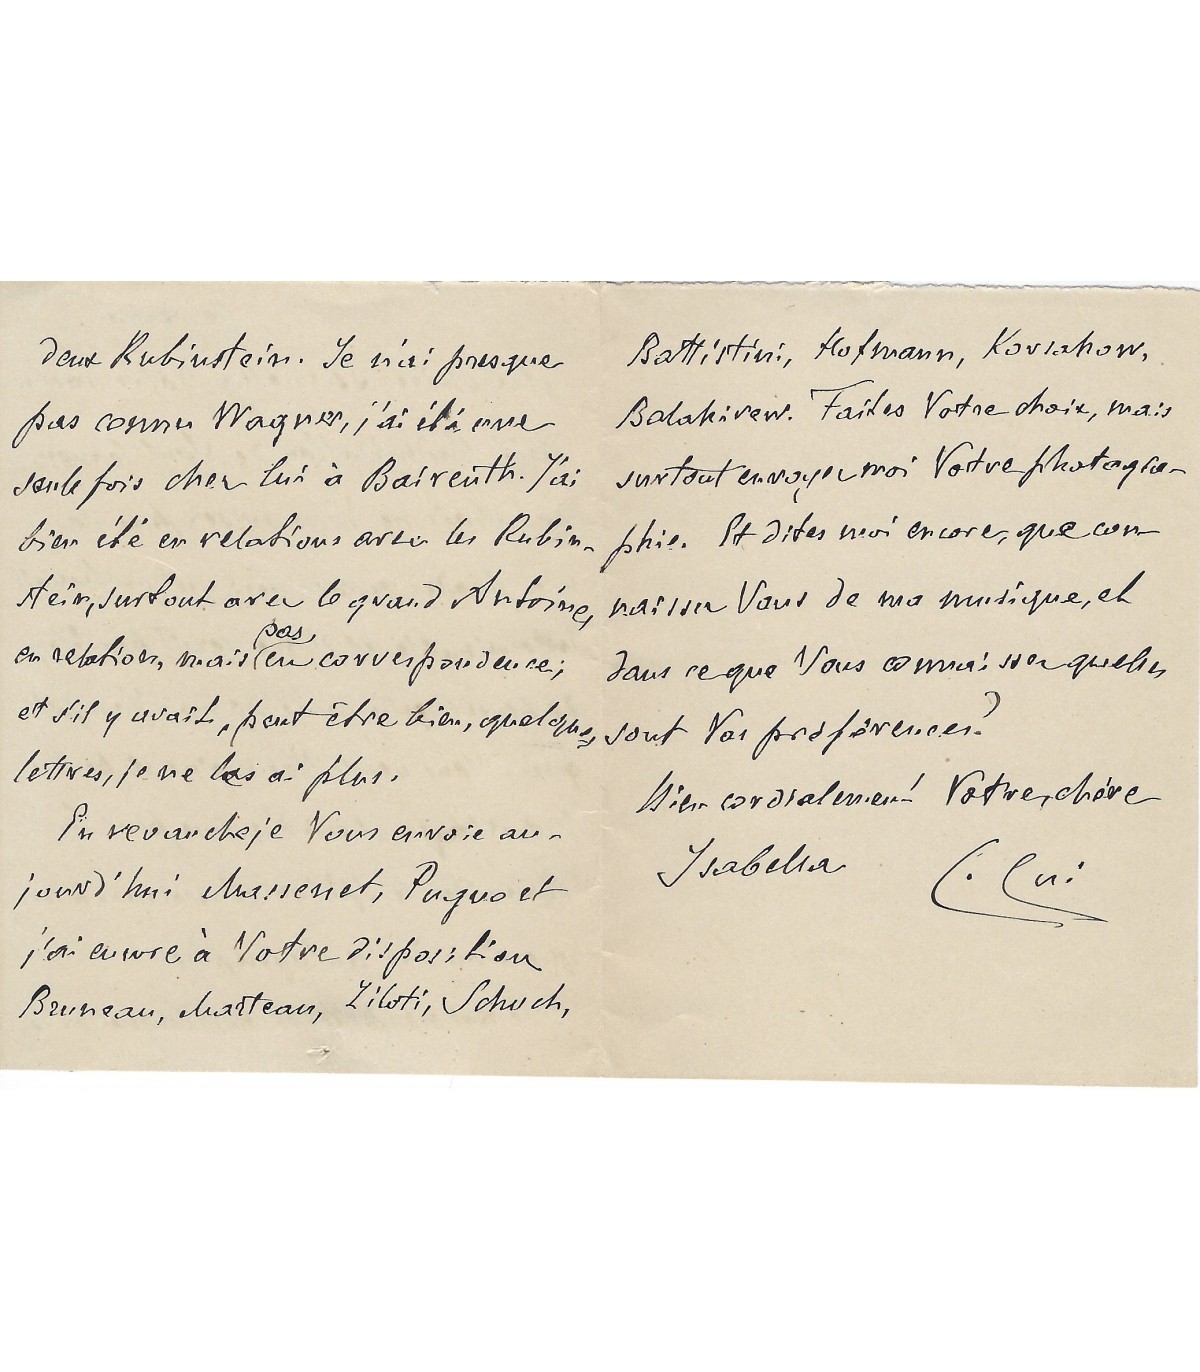 deux Rubinstein. Je n'ai presque
pas connu Wagner, j'ai été une
seule fois chez lui à Baireuth. J'ai
bien été en relations avec les Rubin-
stein, surtout avec le grand Antoine,
en relation, mais pas en correspondence;
et s'il y avait, peut être bien, quelques
lettres, je ne les ai plus.
En revanche je Vous envoie au-
jourd'hui Massenet, Pugno et
j'ai encore à Votre disposition
Bruneau, Marteau, Ziloti, Schuch,
Battistini, Hofmann, Korsakow,
Balakirew. Faites Votre choix, mais
surtout envoyez moi Votre photogra-
phie. Et dites moi encore, que con-
naissez Vous de ma musique, et
dans ce que Vous connaissez quelles
sont Vos préférences?
Bien cordialement Votre, chère
Isabella C. Cui